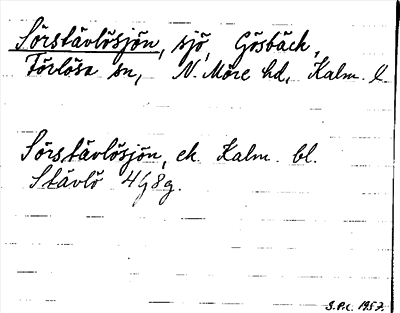 Sörstävlösjön, sjö, Gösbäck,
Förlösa sn, N. Möre hd, Kalm. l.
Sörstävlösjön, ek. Kalm. bl.
Stävlö 4G8g.
S.P.C. 1957.